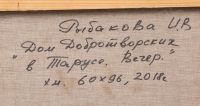 Рыбакова И.В
"Дом Добротворских
в Тарусе. Вечер."
х.м. 60х96, 2018г.